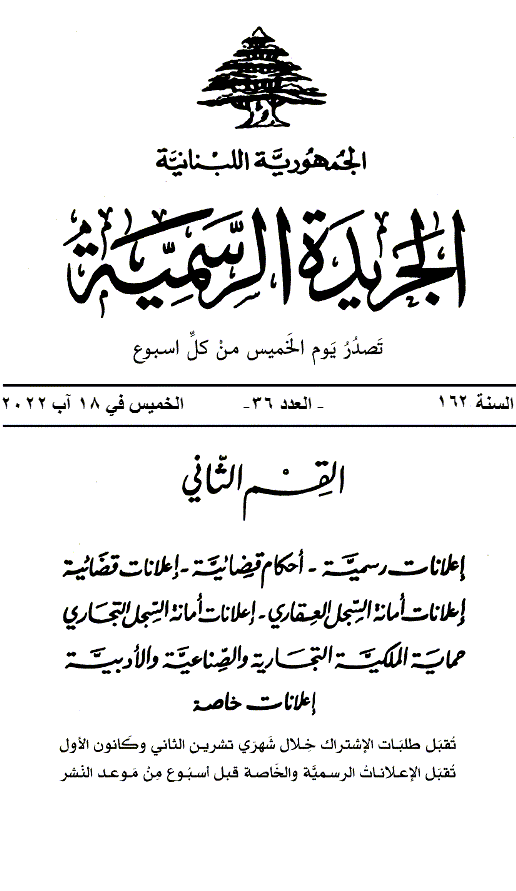 الجمهورية اللبنانية
الجريدة الرسمية
تَصدُرُ يَوم الخَميس منْ كلِّ اسبوع
السنة ١٦٢ - العدد ٣٦- الخميس في ١٨ آب ٢٠٢٢
القِسْم الثّاني
إعلانات رسميَّة - أحكام قضائيَّة - إعلانات قضائية
إعلانات أمانة السِّجل العِقاري - إعلانات أمانة السِّجل التجاري
حماية الملكيَّة التجارية والصِّناعيَّة والأدبيَّة
إعلانات خاصة
تُقبَل طلبَات الإشتراك خِلال شَهرَي تشرين الثاني وكَانون الأول
تُقبَل الإعلاناتُ الرسميَّة والخَاصة قبل أسبُوع مِنْ مَوعد النَشر